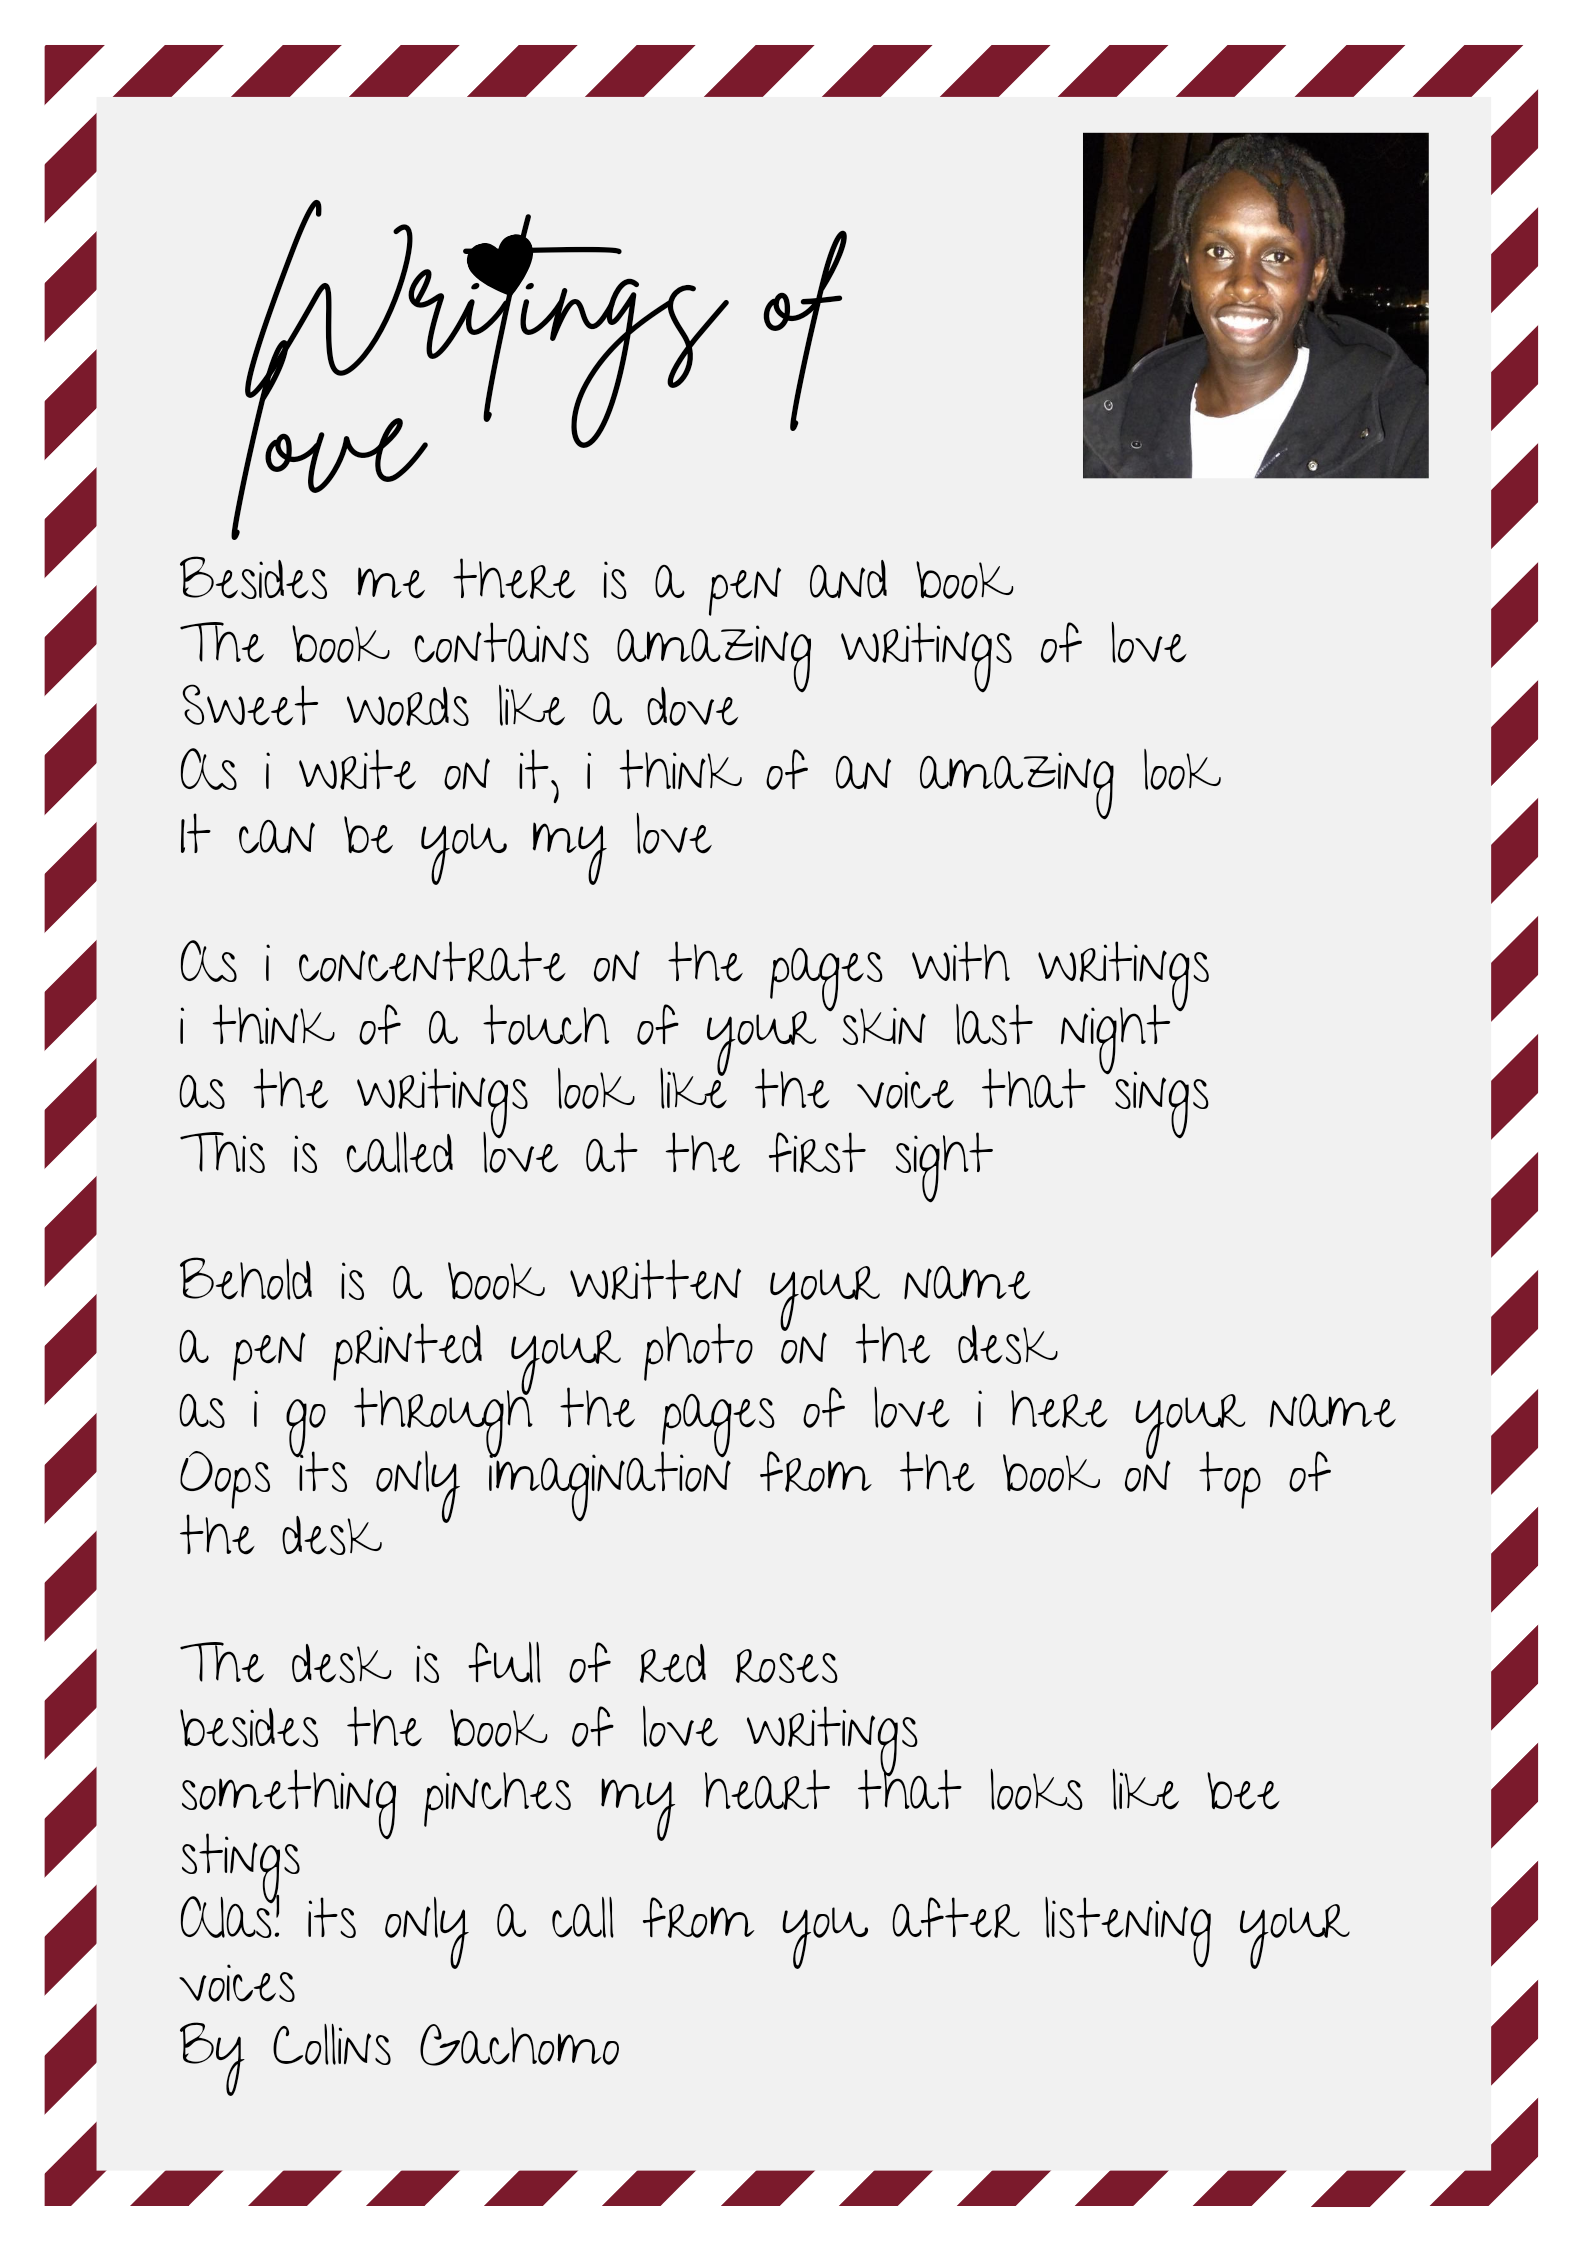 Writings of
love
Besides me there is a pen and book
The book contains amazing writings of love
Sweet words like a dove
As i write on it, i think of an amazing look
It can be you my love
As i concentrate on the pages with writings
i think of a touch of your skin last night
as the writings look like the voice that sings
This is called love at the first sight
Behold is a book written your name
a pen printed your photo on the desk
as i go through the pages of love i here your name
Oops its only imagination from the book on top of
the desk
The desk is full of red roses
besides the book of love writings
something pinches my heart that looks like bee
stings
Alas! its only a call from you after listening your
voices
By Collins Gachomo